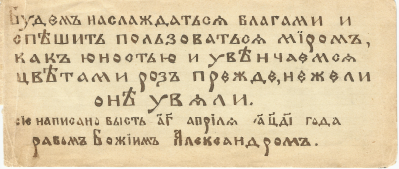 Будемъ наслаждаться благами и
спѣшить пользоваться міромъ,
какъ юностью и увѣнчаемся
цвѣтами розъ прежде, нежели
онѣ увяли.
Сіе написано бысть апрілѧ года
рабомъ Божіимъ Александромъ.